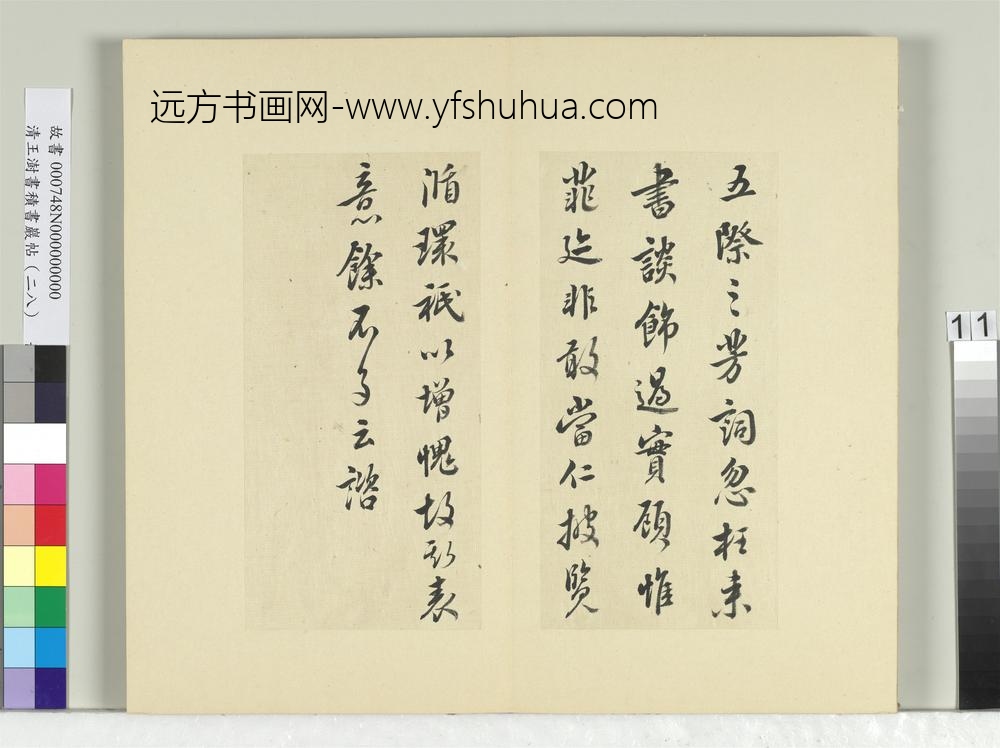 远方书画网-www.yfshuhua.com
故書 000748N000000000
清王澍書積書巖帖（二八）
11
五際之芳詞忽枉来
書談飾過實顧惟
菲非敢當仁披覽
循環祇以增愧故斯表
意餘不多云諮